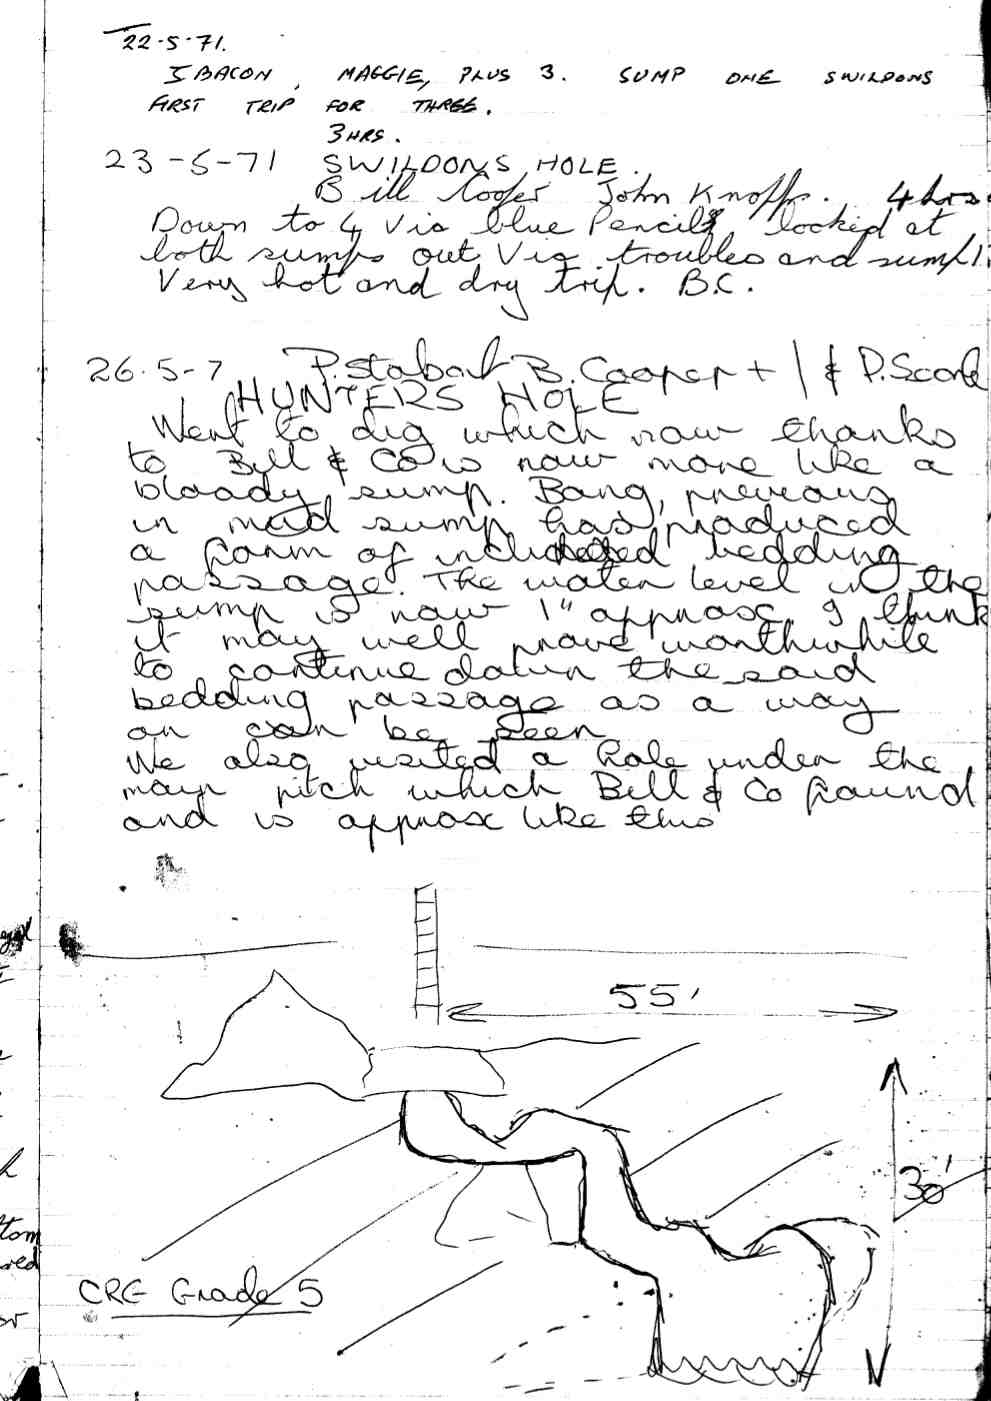 22-5-71.
I BACON, MAGGIE, PLUS 3. SUMP ONE SWILDONS
FIRST TRIP FOR THREE.
3HRS.
23-5-71 SWILDONS HOLE.
Bill Cooper John Knopps. 4 hrs.
Down to 4 Via blue Pencil looked at
both sumps out Via troubles and sump 1.
Very hot and dry trip. B.C.
26.5-7 P. Stobart B. Cooper + 1 & D. Scone
HUNTERS HOLE
Went to dig which now thanks
to Bill & Co is now more like a
bloody sump. Bang, previous
in mud sump has produced
a form of bedding
passage. The water level in the
sump is now 1" approx. I think
it may well prove worthwhile
to continue down the said
bedding passage as a way
on can be seen
We also visited a hole under the
main pitch which Bill & Co found
and is approx like this
55'
30'
CRG Grade 5
tom
red
or